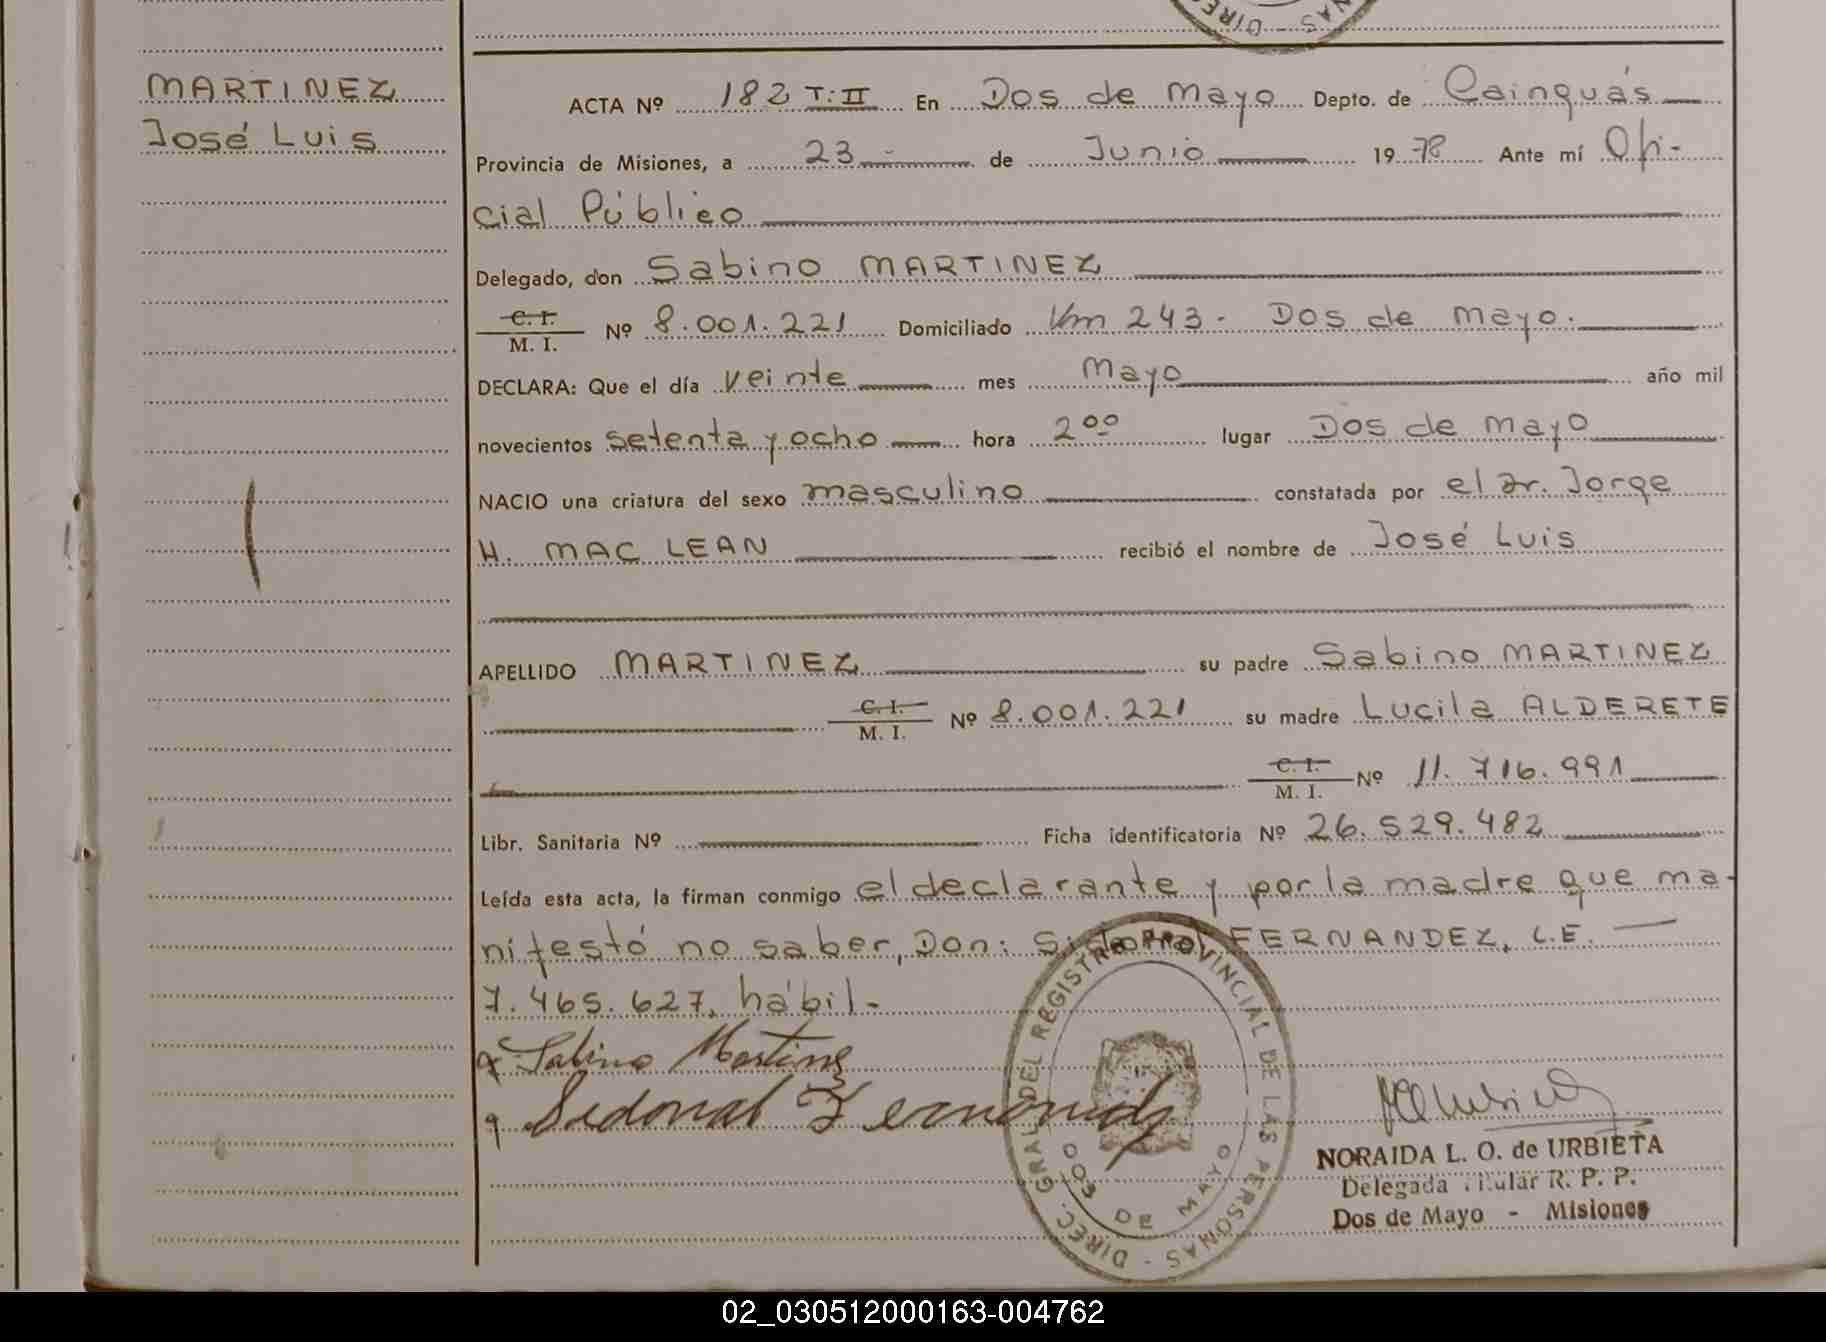 MARTINEZ
José Luis
ACTA Nº 182 T: II En Dos de Mayo Depto. de Cainguás
Provincia de Misiones, a 23 de Junio 1978 Ante mí Ofi-
cial Público
Delegado, don Sabino MARTINEZ
C. I.
M. I. Nº 8.001.221 Domiciliado Km 243 - Dos de Mayo.
DECLARA: Que el día veinte mes Mayo año mil
novecientos setenta y ocho hora 2 00 lugar Dos de Mayo
NACIO una criatura del sexo masculino constatada por el Dr. Jorge
H. MAC LEAN recibió el nombre de José Luis
APELLIDO MARTINEZ su padre Sabino MARTINEZ
C. I.
M. I. Nº 8.001.221 su madre Lucila ALDERETE
C. I.
M. I. Nº 11.716.991
Libr. Sanitaria Nº Ficha identificatoria Nº 26.529.482
Leída esta acta, la firman conmigo el declarante y por la madre que ma-
nifestó no saber, Don: FERNANDEZ, L.E.
7.465.627, hábil-
Sabino Martinez
DIREC. GRAL. DEL REGISTRO PROVINCIAL DE LAS PERSONAS -
DOS DE MAYO
NORAIDA L. O. de URBIETA
Delegada Titular R. P. P.
Dos de Mayo - Misiones
02_030512000163-004762